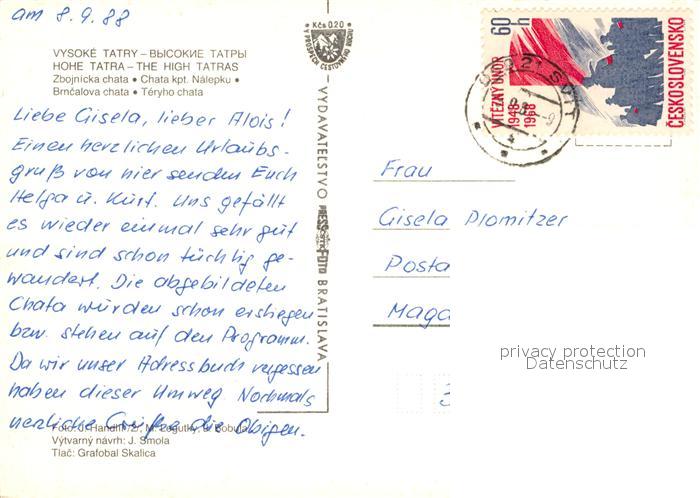 am 8.9.88
Kčs 0.20
VYSOKÉ TATRY – ВЫСОКИЕ ТАТРЫ
HOHE TATRA – THE HIGH TATRAS
Zbojnícka chata • Chata kpt. Nálepku •
Brnčalova chata • Téryho chata
Liebe Gisela, lieber Alois!
Einen herzlichen Urlaubs-
gruß von hier senden Euch
Helga u. Kurt. Uns gefällt
es wieder einmal sehr gut
und sind schon tüchtig ge-
wandert. Die abgebildeten
Chata würden schon erstiegen
bzw. stehen auf den Programm.
Da wir unser Adressbuch vergessen
haben dieser Umweg. Nochmals
herzliche Grüße die Obigen.
Foto: J. Handlíř/2/, M. Zegutky, Bobula
Výtvarný návrh: J. Smola
Tlač: Grafobal Skalica
VYDAVATEĽSTVO PRESSFOTO BRATISLAVA
60 h
VÍTĚZNÝ ÚNOR
1948-
1988
ČESKOSLOVENSKO
Frau
Gisela Plomitzer
Posta
Maga
3
privacy protection
Datenschutz